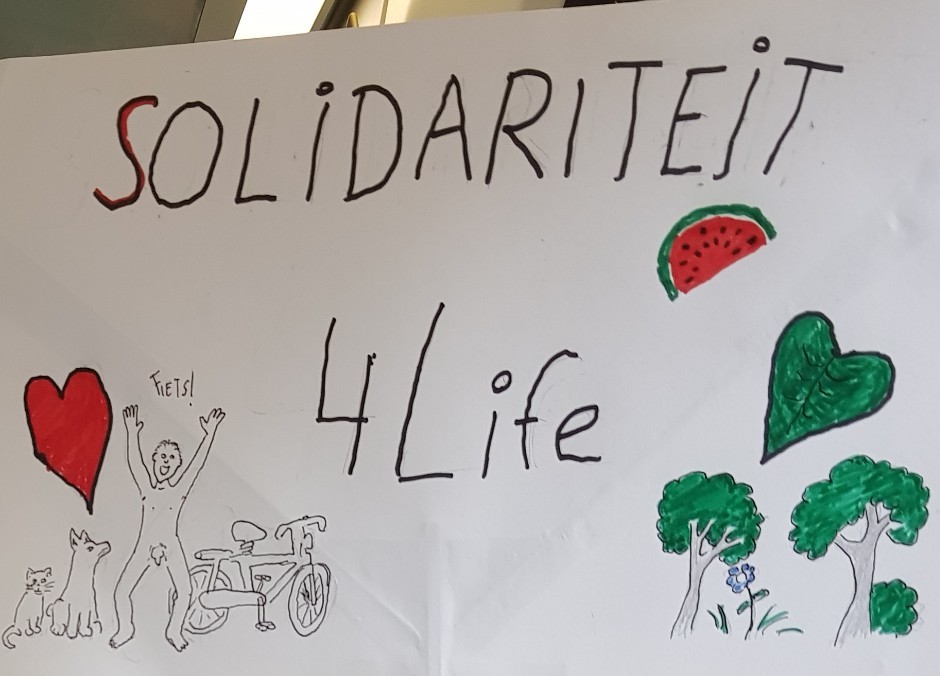 SOLIDARITEIT
4Life
FIETS!